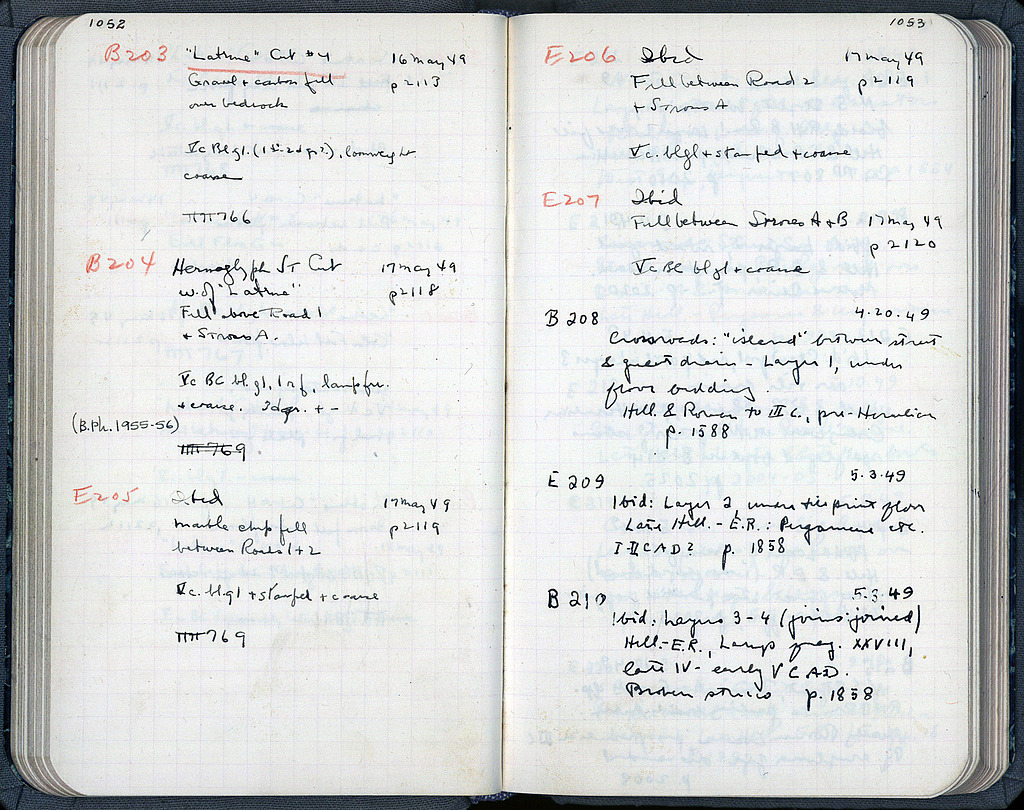 1052
B203 "Latrine" Cut #4 16 May 49
Gravel + carbon fill p 2113
over bedrock
Vc Bl gl. (1st-2d qr?), loomweight
coarse
ΠΠ 766
B204 Heroglyph St Cut 17 May 49
W. of "Latrine" p 2118
Fill above Road 1
+ Stroses A.
Vc BC bl. gl, 1 rf, lamp fr.
+ coarse. 3d qr. + -
(B.Ph. 1955-56)
769
E205 Ibid 17 May 49
marble chip fill p 2119
between Roads 1 + 2
Vc. bl gl + stamped + coarse
769
1053
E206 Ibid 17 May 49
Fill between Road 2 p 2119
+ Stroses A
Vc. bl gl + stamped + coarse
E207 Ibid
Fill between Stroses A + B 17 May 49
p 2120
Vc BC bl gl + coarse
B 208 4.20.49
Crossroads: "island" between street
& great drain - Layer 1, under
floor bedding.
Hell. & Roman to III C., pre-Herulian
p. 1588
E 209 5.3.49
Ibid: Layer 2, under floor
Late Hell. - E.R.: Pergamene etc.
I-II C A D? p. 1858
B 210 5.3.49
Ibid: Layers 3-4 (joins joined)
Hell.-E.R., Lamp frag. XXVIII,
late IV - early V C A.D.
Broken p. 1858